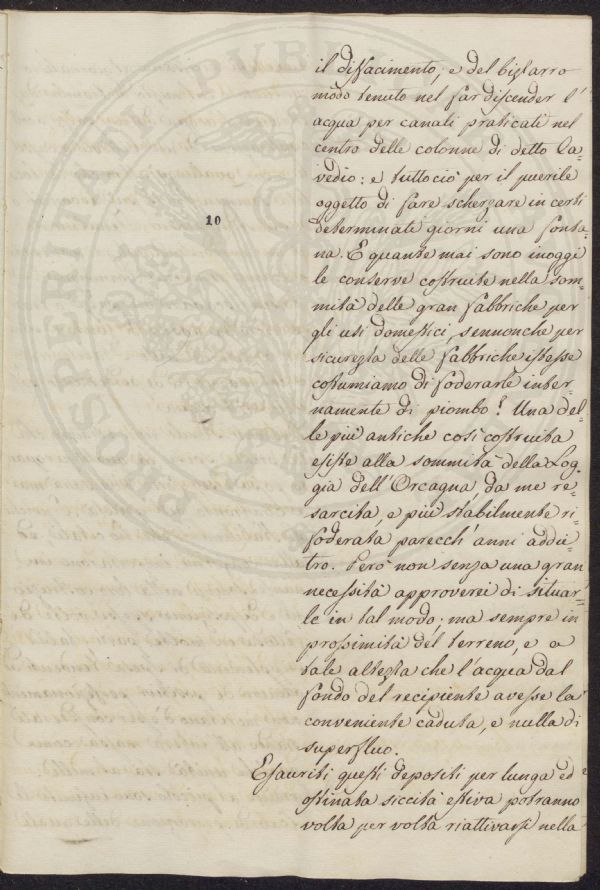 il disfacimento; e del bizzarro
modo tenuto nel far discender l'
acqua per canali praticati nel
centro delle colonne di detto Ca=
vedio: e tuttociò per il puerile
oggetto di fare scherzare in certi
determinati giorni una fonta=
na. E quante mai sono inoggi
le conserve costruite nella som=
mità delle gran fabbriche per
gli usi domestici, sennonche per
sicurezza delle fabbriche istesse
costumiamo di foderarle inter=
namente di piombo! Una del=
le più antiche così costruita
esiste alla sommità della Log=
gia dell'Orcagna, da me re=
sarcita, e più stabilmente ri=
foderata parecch'anni addie=
tro. Però non senza una gran
necessità approverei di situar=
le in tal modo; ma sempre in
prossimità del terreno, e a
tale altezza che l'acqua dal
fondo del recipiente avesse la
conveniente caduta, e nulla di
superfluo.
Esauriti questi depositi per lunga ed
ostinata siccità estiva potranno
volta per volta riattivarsi nella
10
PROSPERITATI PVBL